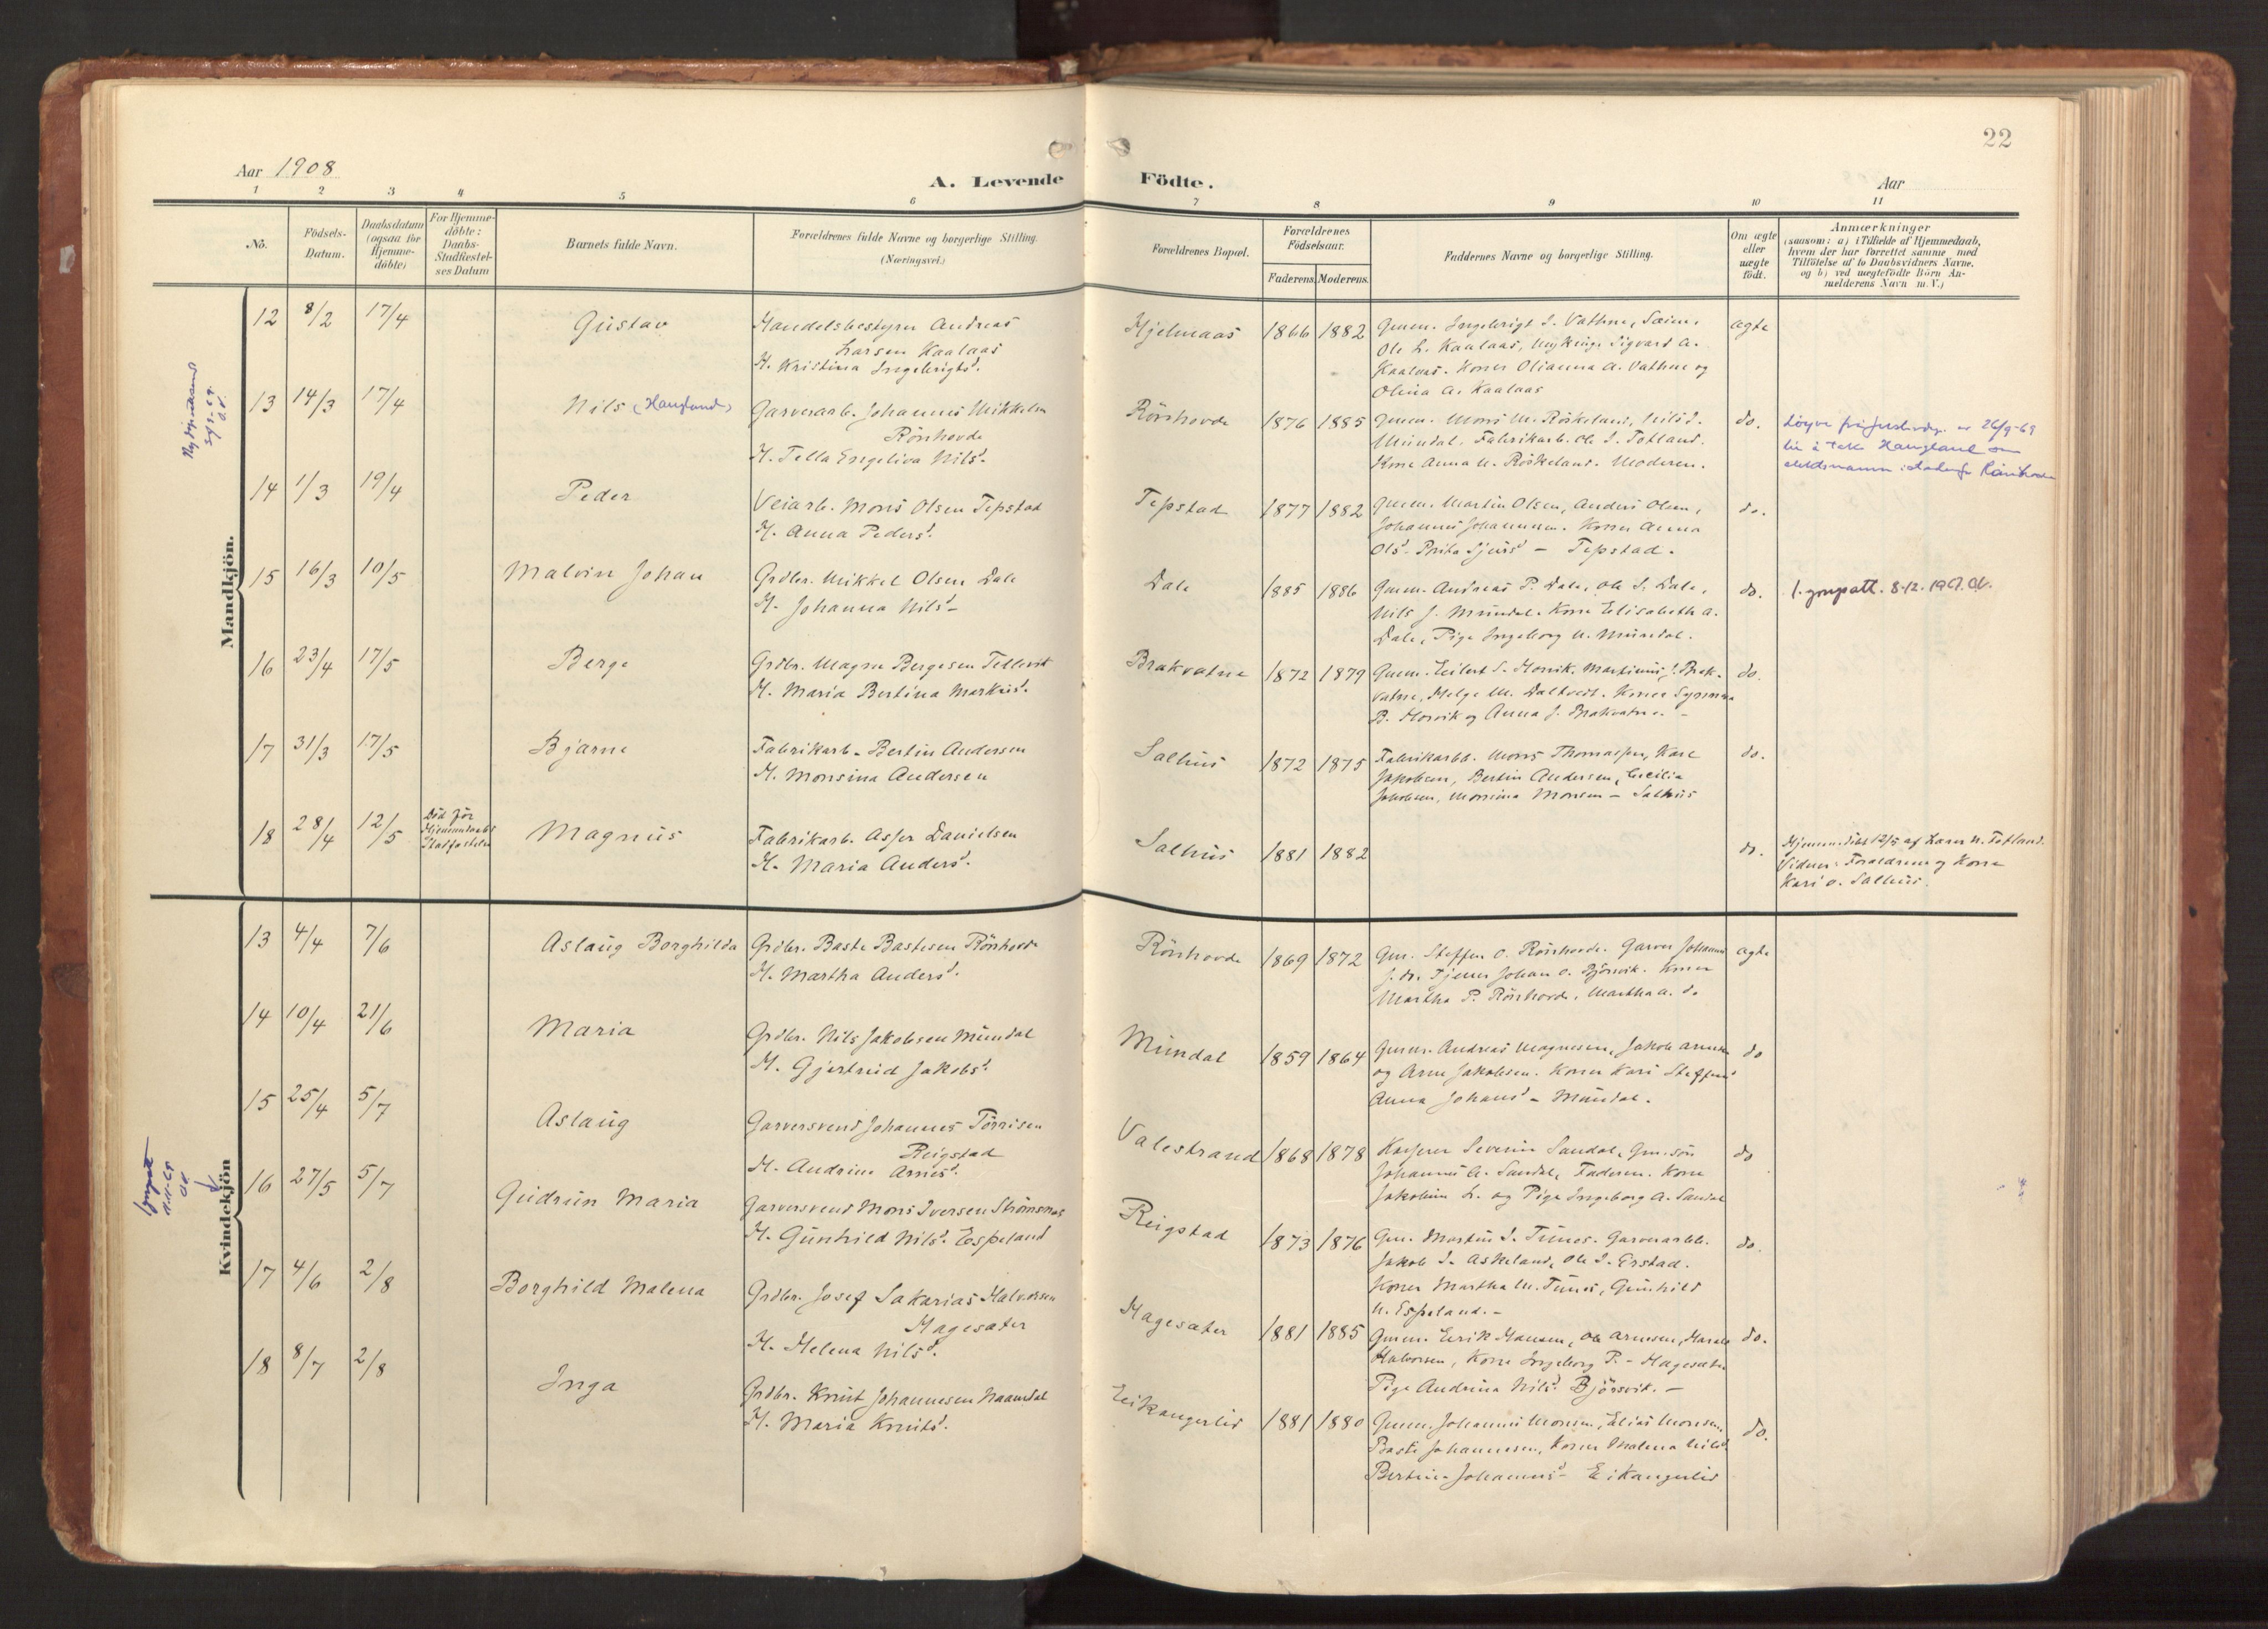 22
Aar 1908
A. Levende Födte.
Aar
1 2 3 4 5 6 7 8 9 10 11
No.
Födsels-
Datum.
Daabsdatum
(ogsaa for
Hjemme-
döbte)
For Hjemme-
döbte:
Daabs-
Stadfæstel-
ses Datum
Barnets fulde Navn.
Forældrenes fulde Navne og borgerlige Stilling.
(Næringsvei.)
Forældrenes Bopæl.
Forældrenes
Födselsaar.
Faderens. Moderens.
Faddernes Navne og borgerlige Stilling.
Om ægte
eller
uægte
födt.
Anmærkninger
(saasom: a) i Tilfælde af Hjemmedaab,
hvem der har forrettet samme med
Tilföielse af to Daabsvidners Navne,
og b) ved uægtefödte Börn An-
melderens Navn m. V.)
Mandkjön.
12 8/2 17/4 Gustav
Handelsbestyrer Andreas
Larsen Kaalaas
H. Kristina Ingebrigtsd.
Hjelmaas 1866 1882
Gmm. Ingebrigt I. Vathne, Sæim,
Ole L. Kaalaas, Ungkarl Sigvard A.
Kaalaas. Koner Olianna A. Vathne og
Olina A. Kaalaas
ægte
13 14/3 17/4 Nils (Haugland)
Garverarb. Johannes Mikkelsen
Rönhovde
H. Tella Engeliva Nilsd.
Rönhovde 1876 1885
Gmm. Mons M. Röskeland, Nils J.
Mundal. Fabrikarb. Ole I. Totland.
Kone Anna N. Röskeland. Moderen.
do.
26/9-69
Haugland
14 1/3 19/4 Peder
Veiarb. Mons Olsen Tepstad
H. Anna Pedersd.
Tepstad 1877 1882
Gmm. Martin Olsen, Anders Olsen,
Johannes Johannessen. Koner Anna
Olsd. Brita Sjursd - Tepstad.
do.
15 16/3 10/5 Malvin Johan
Grdbr. Mikkel Olsen Dale
H. Johanna Nilsd-
Dale 1885 1886
Gmm. Andreas P. Dale, Ole S. Dale,
Nils J. Mundal. Kone Elisabeth A.
Dale, Pige Ingeborg N. Mundal.
do.
8-12. 1967.
16 23/4 17/5 Berge
Grdbr. Magne Bergesen Tellevik
H. Maria Bertina Markusd.
Brakvatne 1872 1879
Gmm. Eilert S. Horvik, Martinus J. Brak-
vatne, Helge M. Daltveit. Koner Synneva
B. Horvik og Anna J. Brakvatne. -
do.
17 31/3 17/5 Bjarne
Fabrikarb. Bertin Andersen
H. Monsina Andersen
Salhus 1872 1875
Fabrikarbb. Mons Thomassen, Karl
Jakobsen, Bertin Andersen, Cecilia
Jakobsen, Monsina Monsen - Salhus
do.
18 28/4 12/5
Död før
Hjemmedaabs
Stadfæstelse
Magnus
Fabrikarb. Asser Danielsen
H. Maria Andersd.
Salhus 1881 1882
do.
Hjemmedöbt 12/5 af Lars N. Totland.
Vidner: Forældrene og Kone
Kari O. Salhus.
Kvindekjön
13 4/4 7/6 Aslaug Borghilda
Grdbr. Baste Bastesen Rönhovde
H. Martha Andersd.
Rönhovde 1869 1872
Gm. Steffen O. Rönhovde. Garver Johannes
J. do. Tjener Johan O. Bjørsvik. Koner
Martha P. Rönhovde, Martha A. do
ægte
14 10/4 21/6 Maria
Grdbr. Nils Jakobsen Mundal
H. Gjertrud Jakobsd.
Mundal 1859 1864
Gmm. Andreas Magnesen, Jakob Arnesen
og Arne Jakobsen. Koner Kari Steffensd
Anna Johansd - Mundal.
do
15 25/4 5/7 Aslaug
Garversvend Johannes Torrisen
Reigstad
H. Andrine Arnesd.
Valestrand 1868 1878
Kasserer Severin Sandal, Gm. sön
Johannes A. Sandal, Faderen. Kone
Jakobine L. og Pige Ingeborg A. Sandal
do
16 27/5 5/7 Gudrun Maria
Garversvend Mons Iversen Strömsnes
H. Gunhild Nilsd. Espeland
Reigstad 1873 1876
Gm. Martin I. Tunes. Garverarbb.
Jakob I. Askeland, Ole I. Erstad.
Koner Martha M. Tunes, Gunhild
N. Espeland.-
do.
17 4/6 2/8 Borghild Malena
Grdbr. Josef Sakarias Halvorsen
Hagesæter
H. Helena Nilsd.
Hagesæter 1881 1885
Gmm. Eirik Hansen, Ole Arnesen, Harald
Halvorsen, Kone Ingeborg P. - Hagesæter
Pige Andrina Nilsd. Bjørsvik. -
do.
18 8/7 2/8 Inga
Grdbr. Knut Johannesen Naamdal
H. Maria Knutsd.
Eikangerlid 1881 1880
Gmm. Johannes Monsen, Elias Monsen,
Baste Johannesen, Koner Malena Nilsd.
Bertine Johannesd - Eikangerlid
do.